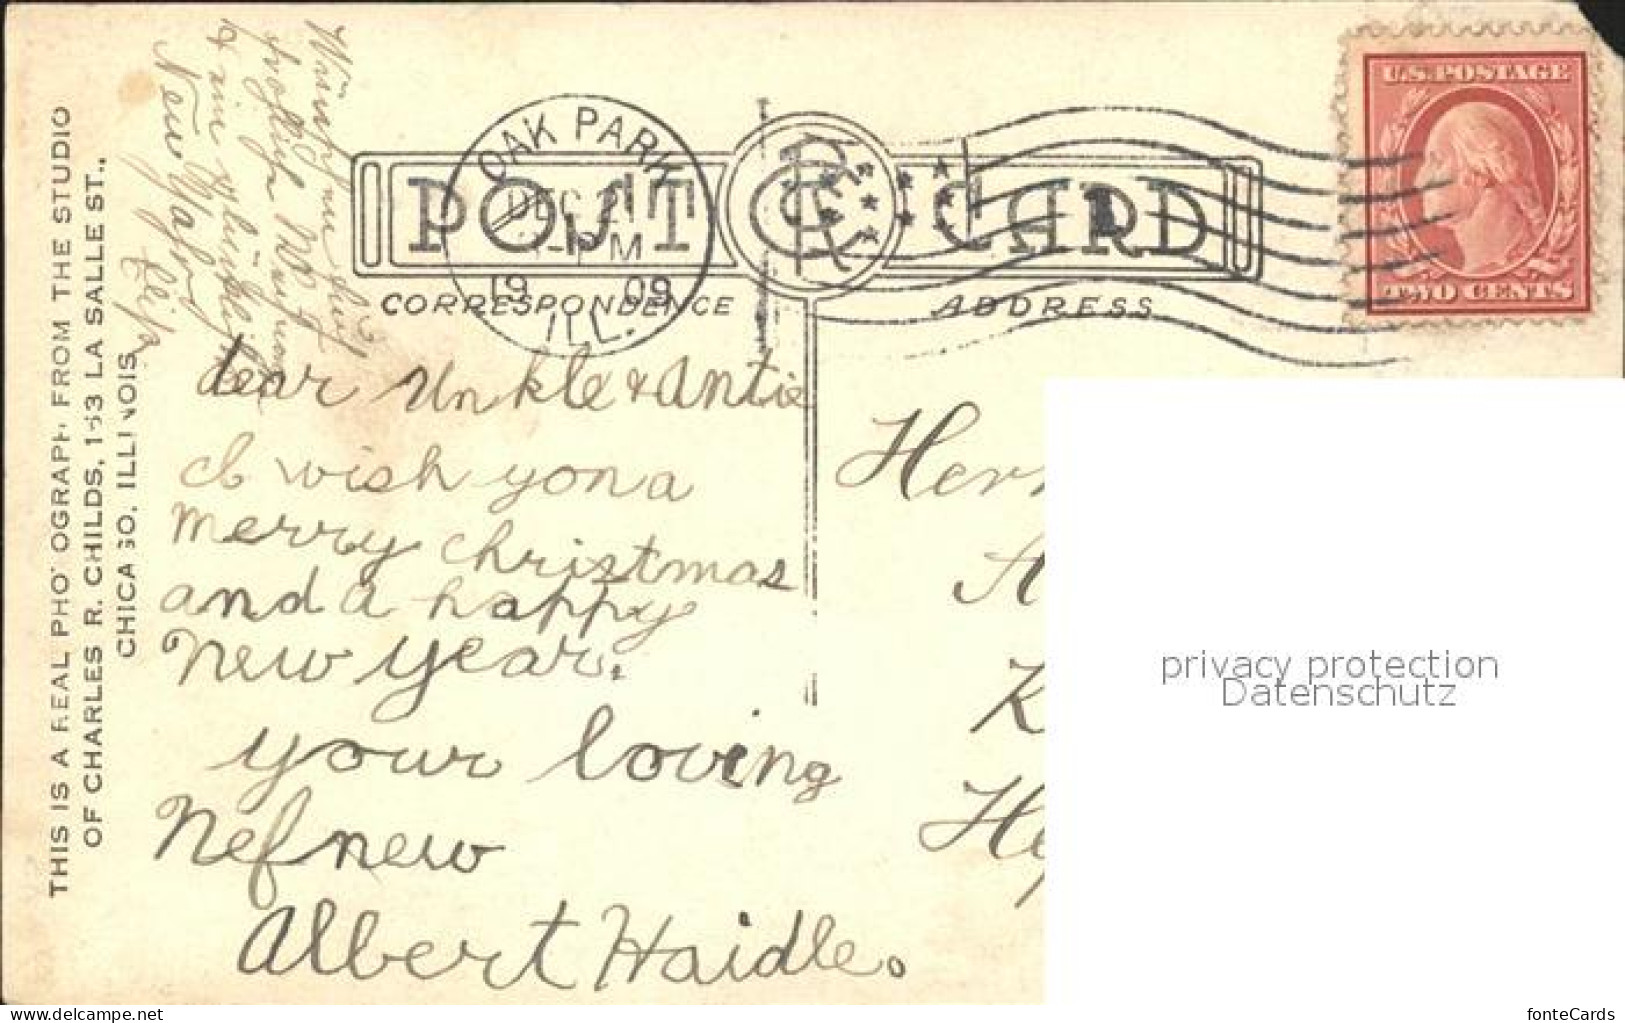 THIS IS A REAL PHOTOGRAPH FROM THE STUDIO
OF CHARLES R. CHILDS, 153 LA SALLE ST.,
CHICAGO, ILLINOIS
New Yahr
OAK PARK
DEC 2
PM
19 09
ILL.
POST CARD
CORRESPONDENCE
ADDRESS
U.S. POSTAGE
TWO CENTS
dear Unkle & Antie
I wish you a
merry christmas
and a happy
New year.
your loving
Nefnew
Albert Haidle.
Her
A
K
privacy protection
Datenschutz
www.delcampe.net
fonteCards